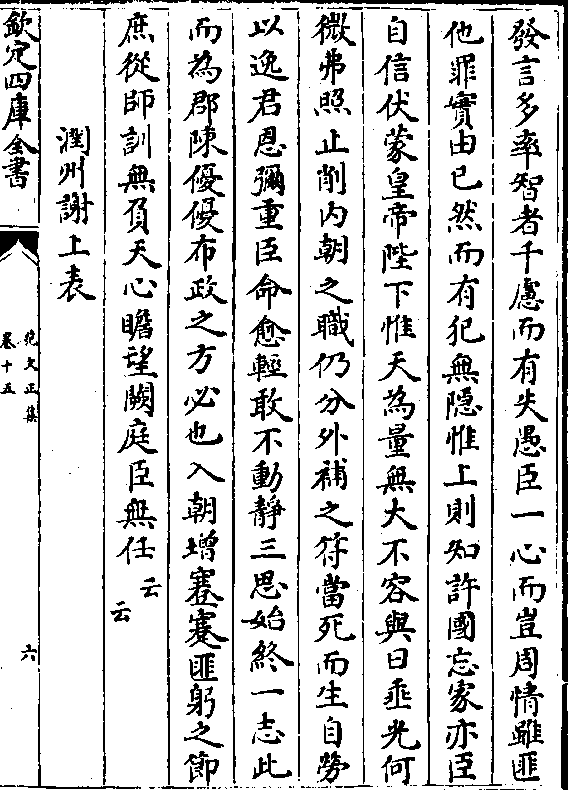 發言多率智者千慮而有失愚臣一心而豈周情雖匪
他罪實由已然而有犯無隠惟上則知許國忘家亦臣
自信伏蒙皇帝陛下惟天為量無大不容與日垂光何
微弗照止削内朝之職仍分外補之符當死而生自勞
以逸君恩彌重臣命愈輕敢不動靜三思始終一志此
而為郡陳優優布政之方必也入朝增蹇蹇匪躬之節
庶從師訓無負天心瞻望闕庭臣無任云云
潤州謝上表
欽定四庫全書
范文正集
卷十五
六